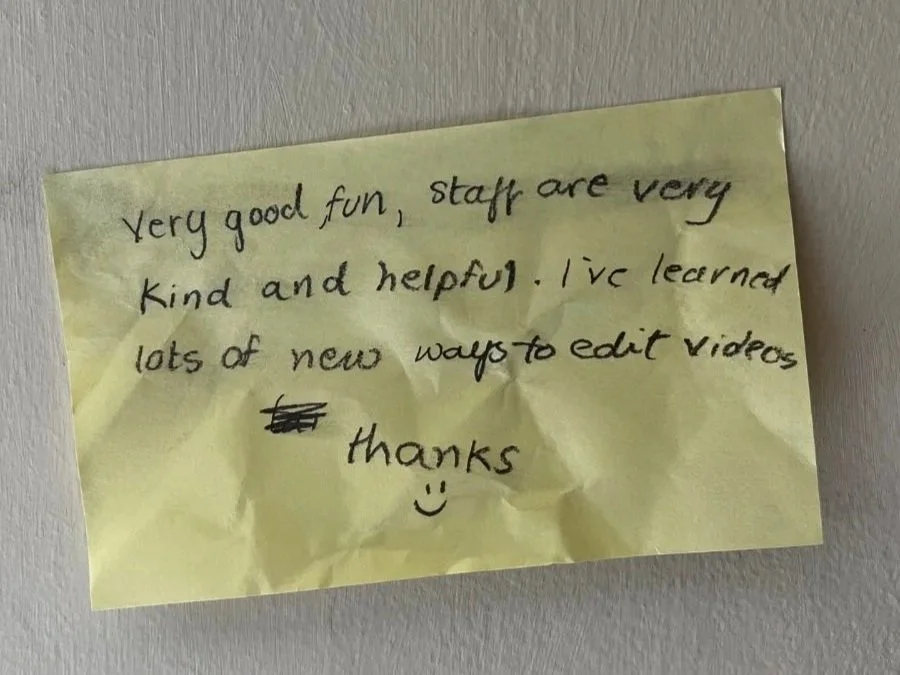 Very good fun, staff are very
kind and helpful. I've learned
lots of new ways to edit videos
thanks